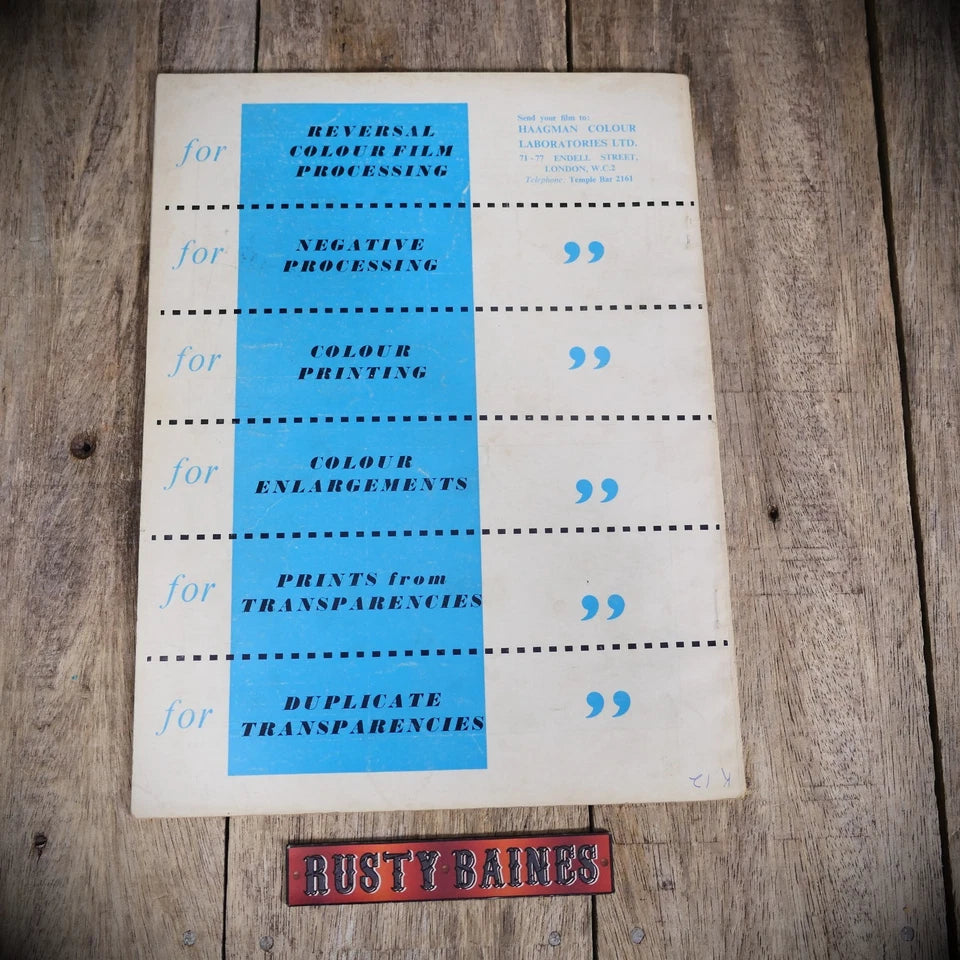 for
REVERSAL
COLOUR FILM
PROCESSING
Send your film to:
HAAGMAN COLOUR
LABORATORIES LTD.
71-77 ENDELL STREET,
LONDON, W.C.2
Telephone: Temple Bar 2161
for
NEGATIVE
PROCESSING
”
for
COLOUR
PRINTING
”
for
COLOUR
ENLARGEMENTS
”
for
PRINTS from
TRANSPARENCIES
”
for
DUPLICATE
TRANSPARENCIES
”
K 12
RUSTY BAINES